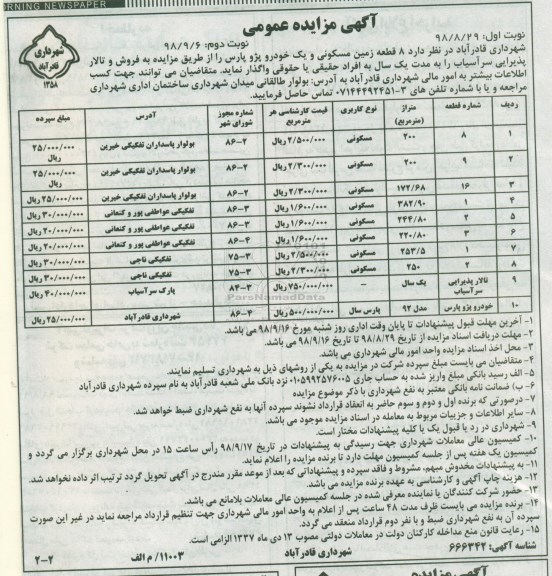 RNING NEWSPAPER
آگهی مزایده عمومی
نوبت اول: ۹۸/۸/۲۹
نوبت دوم: ۹۸/۹/۶
شهرداری
قادرآباد
۱۳۵۸
شهرداری قادرآباد در نظر دارد ۸ قطعه زمین مسکونی و یک خودرو پژو پارس را از طریق مزایده به فروش و تالار
پذیرایی سرآسیاب را به مدت یک سال به افراد حقیقی یا حقوقی واگذار نماید. متقاضیان می توانند جهت کسب
اطلاعات بیشتر به امور مالی شهرداری قادرآباد به آدرس: بولوار طالقانی میدان شهرداری ساختمان اداری شهرداری
مراجعه و یا با شماره تلفن های ۳-۰۷۱۴۴۴۹۲۴۵۱ تماس حاصل فرمایید.
ردیف شماره قطعه متراژ (مترمربع) نوع کاربری قیمت کارشناسی هر مترمربع شماره مجوز شورای شهر آدرس مبلغ سپرده
۱ ۸ ۲۰۰ مسکونی ۲/۵۰۰/۰۰۰ ریال ۸۶-۲ بولوار پاسداران تفکیکی خیرین ۲۵/۰۰۰/۰۰۰ ریال
۲ ۹ ۲۰۰ مسکونی ۲/۳۰۰/۰۰۰ ریال ۸۶-۲ بولوار پاسداران تفکیکی خیرین ۲۵/۰۰۰/۰۰۰ ریال
۳ ۱۶ ۱۷۲/۶۸ مسکونی ۲/۳۰۰/۰۰۰ ریال ۸۶-۲ بولوار پاسداران تفکیکی خیرین ۲۵/۰۰۰/۰۰۰ ریال
۴ ۱ ۳۸۲/۹۰ مسکونی ۱/۶۰۰/۰۰۰ ریال ۸۶-۳ تفکیکی عواطفی پور و کنعانی ۳۰/۰۰۰/۰۰۰ ریال
۵ ۲ ۲۴۴/۸۰ مسکونی ۱/۶۰۰/۰۰۰ ریال ۸۶-۳ تفکیکی عواطفی پور و کنعانی ۲۰/۰۰۰/۰۰۰ ریال
۶ ۳ ۲۲۰/۸۰ مسکونی ۱/۶۰۰/۰۰۰ ریال ۸۶-۴ تفکیکی عواطفی پور و کنعانی ۲۰/۰۰۰/۰۰۰ ریال
۷ ۱ ۲۵۳/۵ مسکونی ۲/۵۰۰/۰۰۰ ریال ۷۵-۳ تفکیکی ناجی ۳۰/۰۰۰/۰۰۰ ریال
۸ ۲ ۲۵۰ مسکونی ۲/۳۰۰/۰۰۰ ریال ۷۵-۳ تفکیکی ناجی ۳۰/۰۰۰/۰۰۰ ریال
۹ تالار پذیرایی سرآسیاب یک سال – ۷۵۰/۰۰۰/۰۰۰ ریال ۸۴-۳ پارک سرآسیاب ۴۰/۰۰۰/۰۰۰ ریال
۱۰ خودرو پژو پارس مدل ۹۲ پارس سال ۵۰۰/۰۰۰/۰۰۰ ریال ۸۶-۴ شهرداری قادرآباد ۲۵/۰۰۰/۰۰۰ ریال
ParsNamadData
۱- آخرین مهلت قبول پیشنهادات تا پایان وقت اداری روز شنبه مورخ ۹۸/۹/۱۶ می باشد.
۲- مهلت دریافت اسناد مزایده از تاریخ ۹۸/۸/۲۹ تا تاریخ ۹۸/۹/۱۶ می باشد.
۳- محل اخذ اسناد مزایده واحد امور مالی شهرداری می باشد.
۴- متقاضیان می بایست مبلغ سپرده شرکت در مزایده به یکی از روشهای ذیل به شهرداری تسلیم نمایند.
۵- الف رسید بانکی مبلغ واریز شده به حساب جاری ۰۱۰۵۹۹۲۵۷۶۰۰۵ نزد بانک ملی شعبه قادرآباد به نام سپرده شهرداری قادرآباد
۶- ب) ضمانت نامه بانکی معتبر به نفع شهرداری با ذکر موضوع مزایده
۷- درصورتی که برنده اول و دوم و سوم حاضر به انعقاد قرارداد نشوند سپرده آنها به نفع شهرداری ضبط خواهد شد.
۸- سایر اطلاعات و جزییات مربوط به معامله در اسناد مزایده موجود می باشد.
۹- شهرداری در رد یا قبول یک یا کلیه پیشنهادات مختار است.
۱۰- کمیسیون عالی معاملات شهرداری جهت رسیدگی به پیشنهادات در تاریخ ۹۸/۹/۱۷ رأس ساعت ۱۵ در محل شهرداری برگزار می گردد و
کمیسیون یک هفته پس از جلسه کمیسیون مهلت دارد تا برنده مزایده را اعلام نماید.
۱۱- به پیشنهادات مخدوش مبهم، مشروط و فاقد سپرده و پیشنهاداتی که بعد از موعد مقرر مندرج در آگهی تحویل گردد ترتیب اثر داده نخواهد شد.
۱۲- هزینه چاپ آگهی و کارشناسی به عهده برنده مزایده می باشد.
۱۳- حضور شرکت کنندگان یا نماینده معرفی شده در جلسه کمیسیون عالی معاملات بلامانع می باشد.
۱۴- برنده مزایده می بایست ظرف مدت ۴۸ ساعت پس از اعلام به واحد امور مالی شهرداری جهت تنظیم قرارداد مراجعه نماید در غیر این صورت
سپرده آن به نفع شهرداری ضبط و با نفر دوم قرارداد منعقد می گردد.
۱۵- رعایت قانون منع مداخله کارکنان دولت در معاملات دولتی مصوب ۱۳ دی ماه ۱۳۳۷ الزامی است.
شناسه آگهی: ۶۶۶۳۴۲
شهرداری قادرآباد
۱۱۰۰۳/م الف
۲-۲
آگهی مزایده